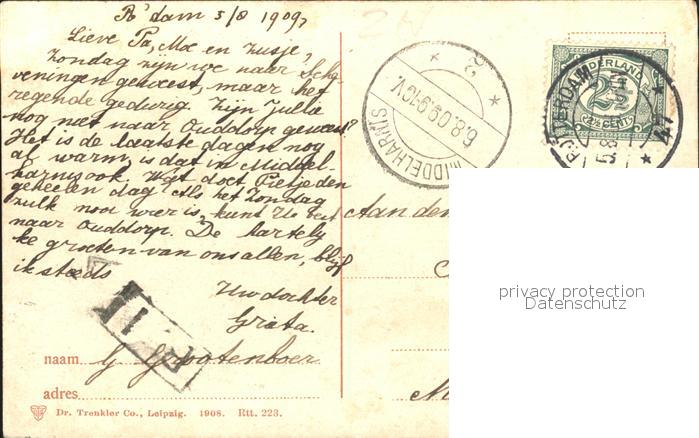 R'dam 5/8 1909,
Lieve Pa, Moe en zusje,
Zondag zijn we naar Sche-
veningen geweest, maar het
regende gedurig. Zijn Jullie
nog niet naar Ouddorp geweest?
Het is de laatste dagen nog
al warm, is dat in Middel-
harnis ook. Wat doet Pietje den
geheelen dag? Als het Zondag
zulk mooi weer is, kunt U best
naar Ouddorp. De hartely
ke groeten van ons allen, blijf
ik steeds
Uw dochter
Greta.
naam G Grootenboer
adres
Dr. Trenkler Co., Leipzig. 1908. Rtt. 223.
MIDDELHARNIS
6.8.09.9-10V.
2
NEDERLAND
2½
2½ CENT
ROTTERDAM
47
Aan den
privacy protection
Datenschutz